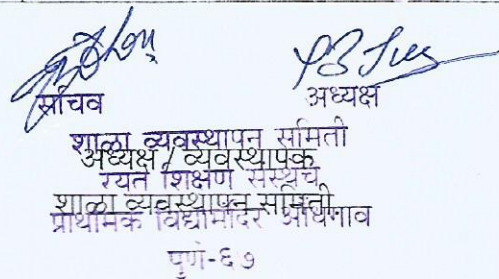 सचिव अध्यक्ष
शाळा व्यवस्थापन समिती
अध्यक्ष / व्यवस्थापक
रयत शिक्षण संस्थेचे
शाळा व्यवस्थापन समिती
प्राथमिक विद्यामंदिर औंधगाव
पुणे-६७